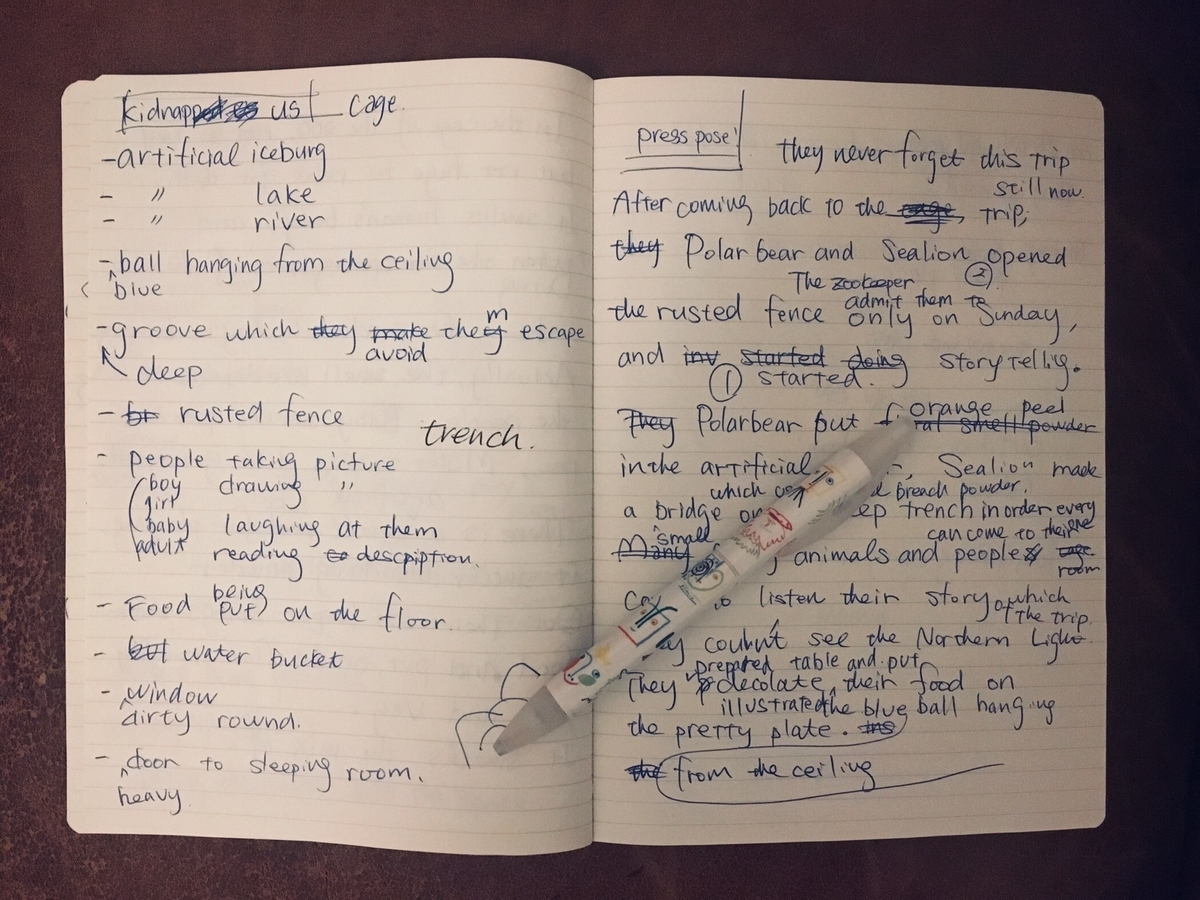 kidnapp us cage.
-artificial iceburg
- 〃 lake
- 〃 river
- ball hanging from the ceiling
blue
-groove which they make them escape
avoid
deep
- br rusted fence
trench.
- people taking picture
boy drawing 〃
girl
baby laughing at them
adult reading to descpiption.
- Food being put on the floor.
- but water bucket
- window
dirty round.
- door to sleeping room.
heavy
press pose'
they never forget this trip
still now.
After coming back to the cage, trip,
they Polar bear and Sealion opened
The zookeeper ②
the rusted fence admit them to only on Sunday,
and inv started doing story telling.
① started.
They Polarbear put orange peel
rat smell powder
in the artificial Sealion made
which breach powder.
a bridge on trench in order every
small can come to their
Many animals and people cage
room
to listen their story which
of the trip.
couldn't see the Northern Light.
prepared table and put
They decolate, their food on
illustrated the blue ball hanging
the pretty plate. ins
the from the ceiling